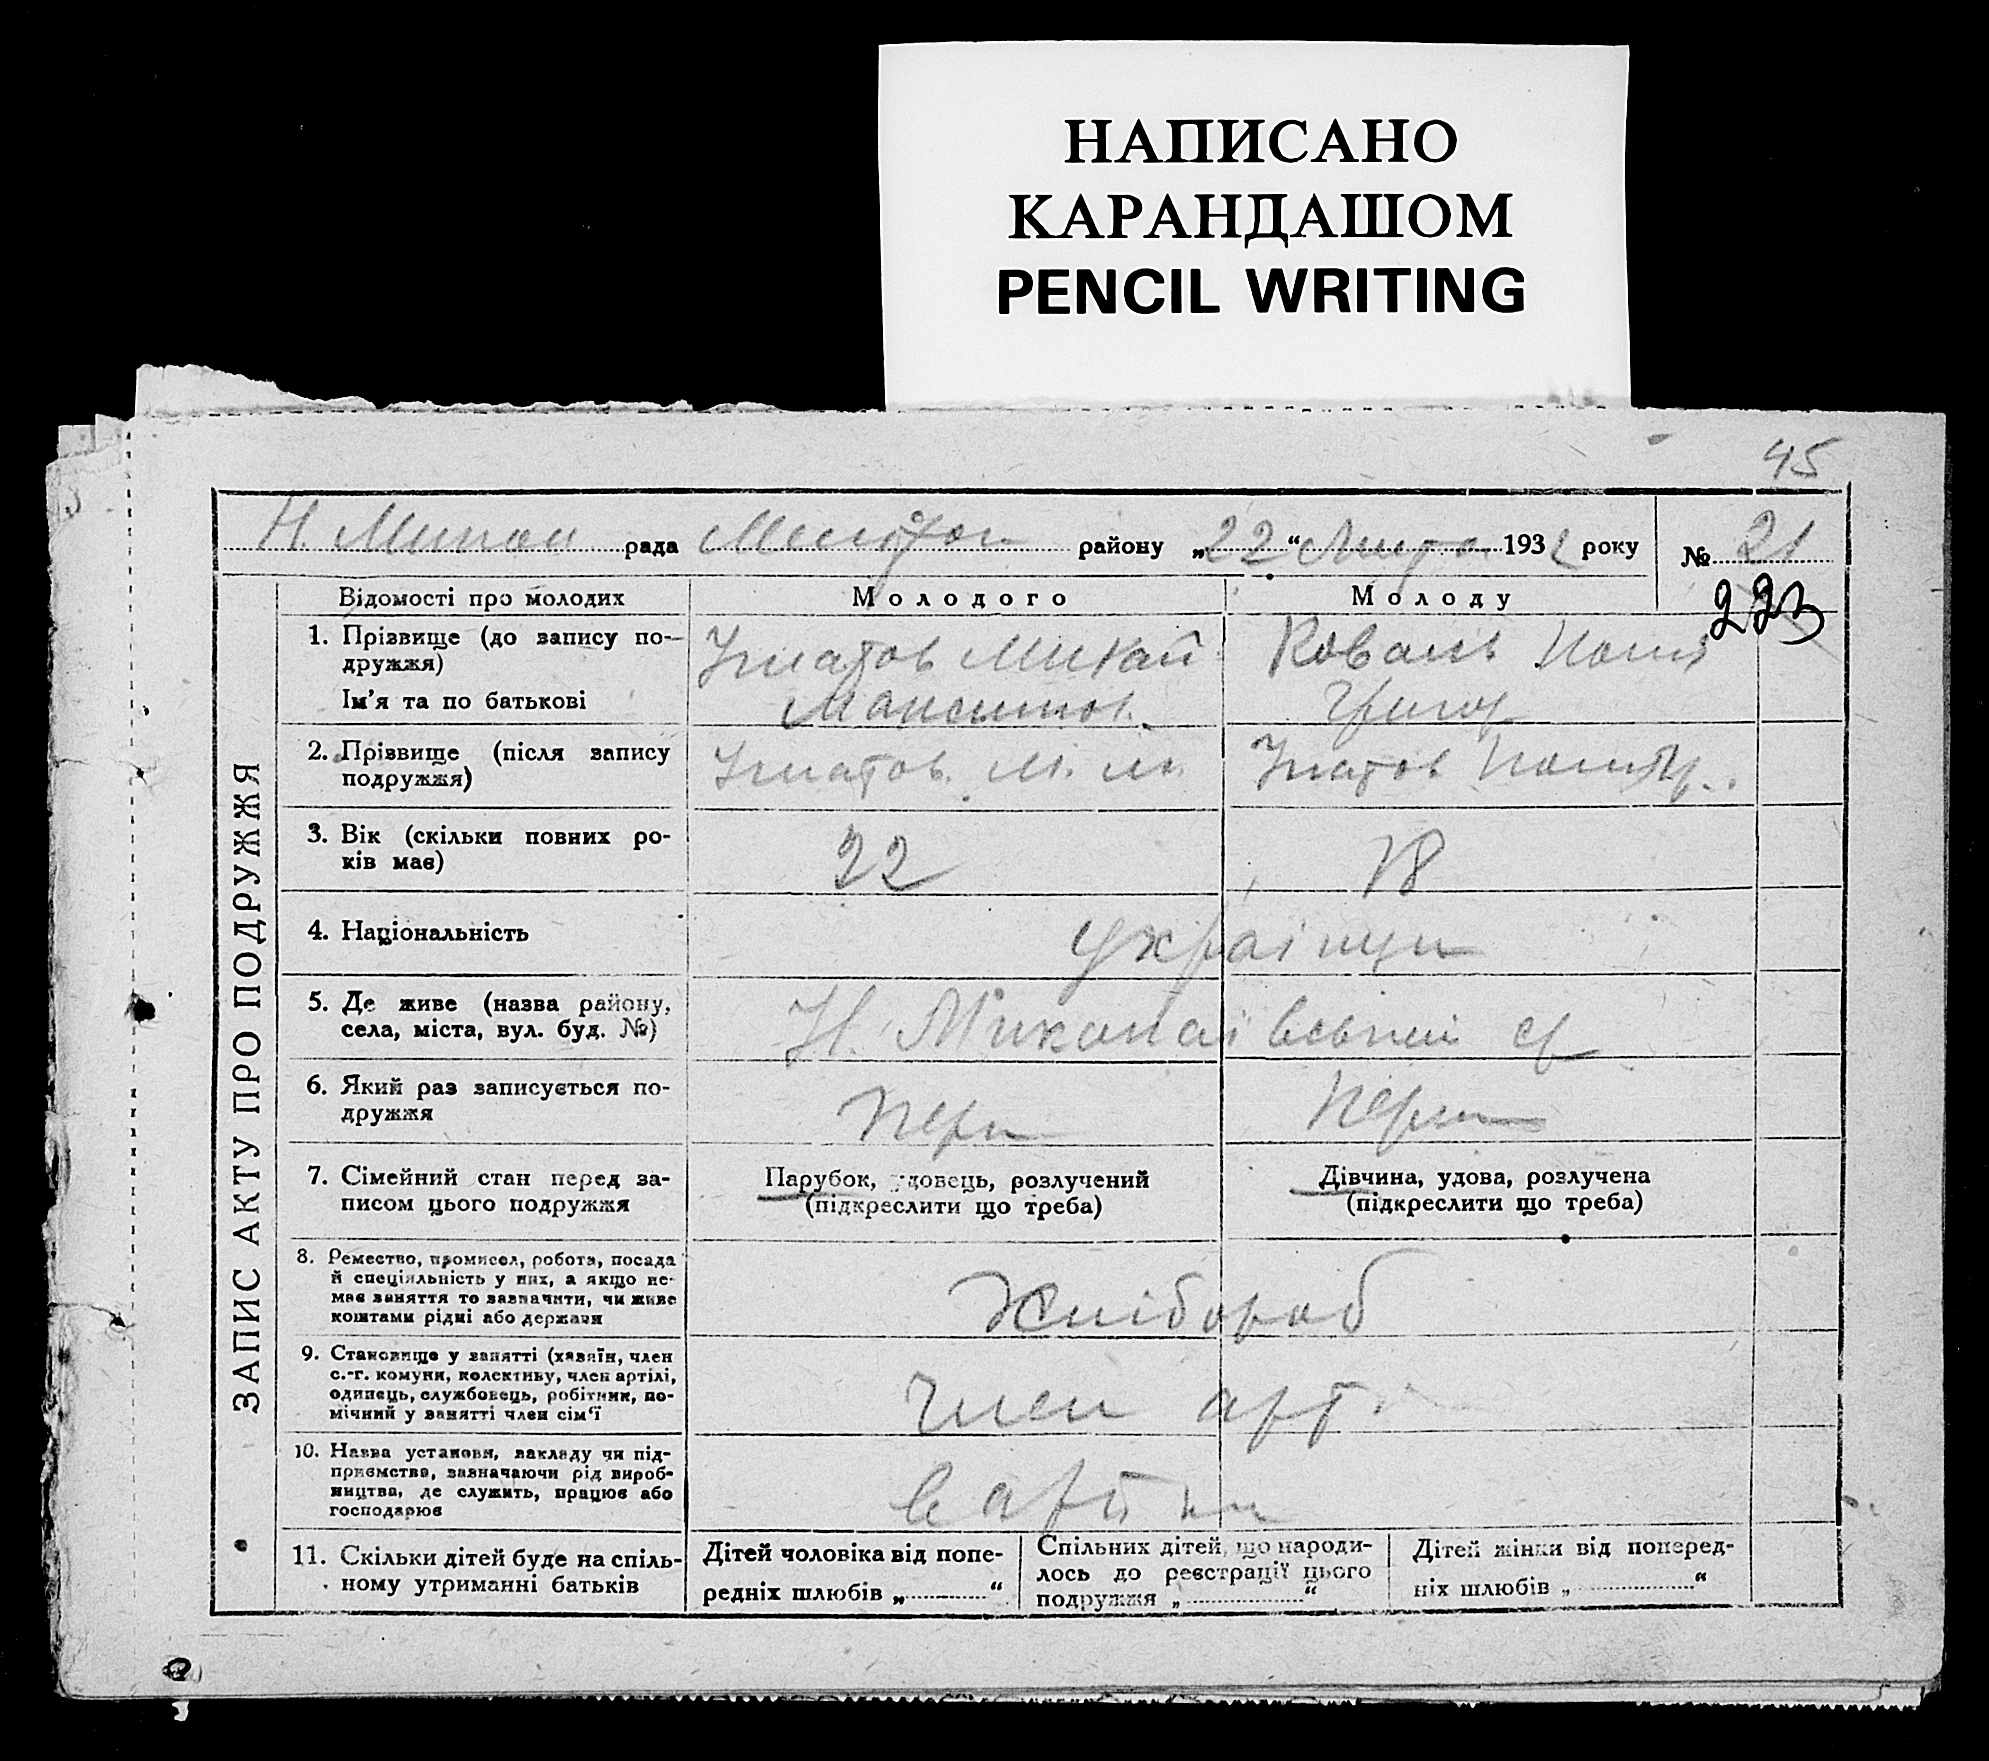 НАПИСАНО
КАРАНДАШОМ
PENCIL WRITING
45
Н. Микол рада Меліт районy „22“ Лист 1932 року № 21
223
ЗАПИС АКТУ ПРО ПОДРУЖЖЯ
Відомості про молодих Молодого Молоду
1. Прізвище (до запису по-
дружжя)
Ім'я та по батькові
Коваль
Григор
2. Прізвище (після запису
подружжя)
М. М.
3. Вік (скільки повних ро-
ків має)
22 18
4. Національність
Українци
5. Де живе (назва району,
села, міста, вул. буд. №)
Н. Миколаївській ср
6. Який раз записується по-
дружжя
перш перш
7. Сімейний стан перед за-
писом цього подружжя
Парубок, удовець, розлучений
(підкреслити що треба)
Дівчина, удова, розлучена
(підкреслити що треба)
8. Ремество, промисел, робота, посада
й спеціяльність у них, а якщо не-
має заняття то зазначити, чи живе
коштами рідні або держави
Хлібороб
9. Становище у занятті (хазяїн, член
с.-г. комуни, колективу, член артілі,
одинець, службовець, робітник, по-
мічний у занятті член сім'ї
член арт.
10. Назва установи, закладу чи під-
приємства, зазначаючи рід вироб-
ництва, де служить, працює або
господарює
в арт
11. Скільки дітей буде на спіль-
ному утриманні батьків
Дітей чоловіка від попе-
редніх шлюбів „ “
Спільних дітей, що народи-
лось до реєстрації цього
подружжя „ “
Дітей жінки від поперед-
ніх шлюбів „ “